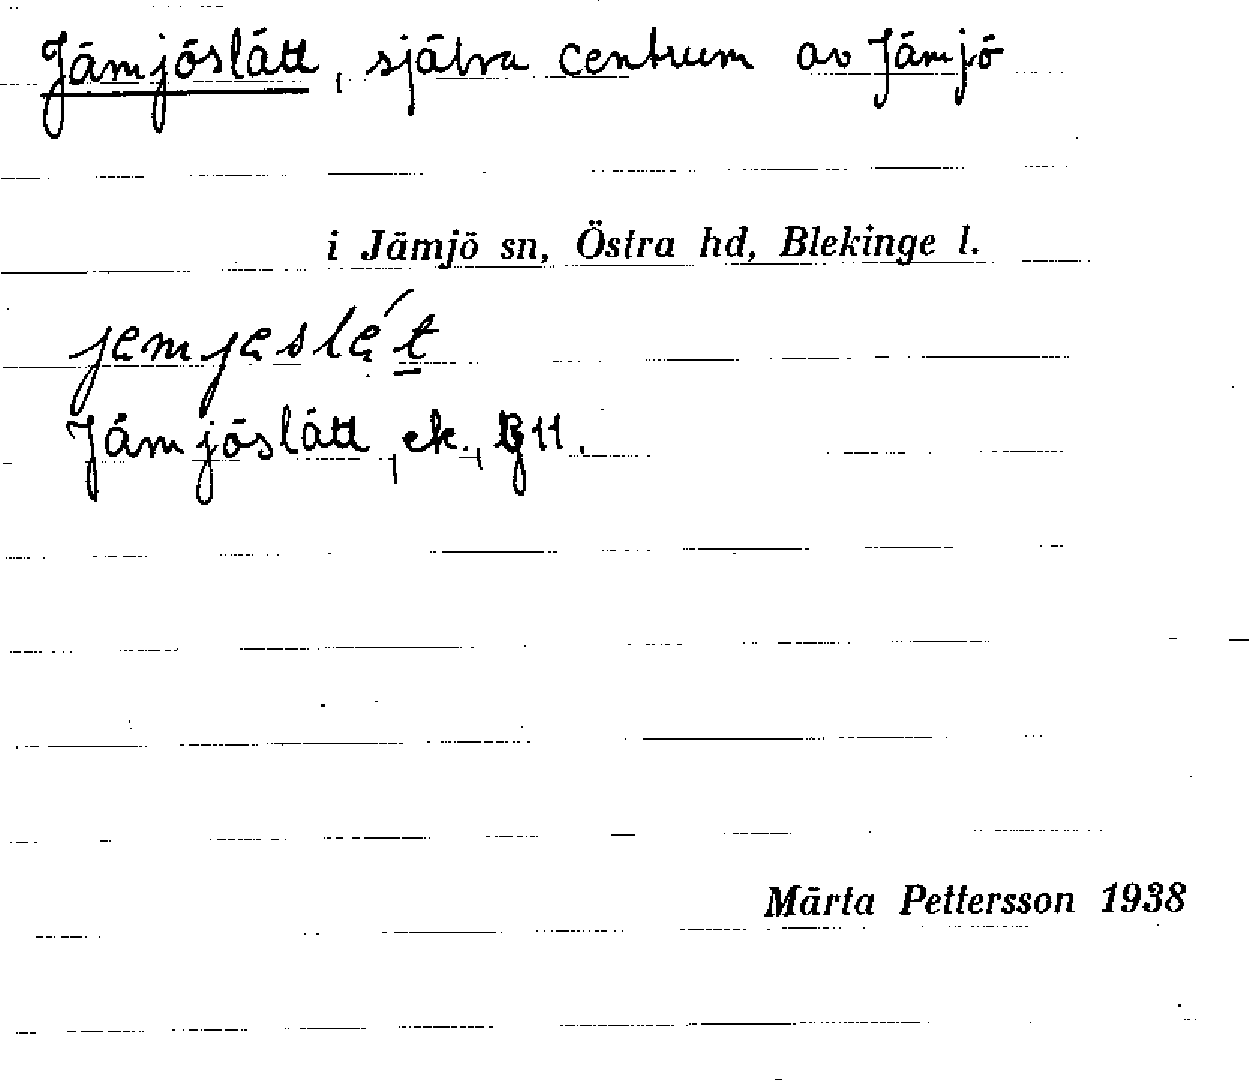 Jämjöslätt, själva centrum av Jämjö
i Jämjö sn, Östra hd, Blekinge l.
Jämjöslätt, ek.,
Märta Pettersson 1938